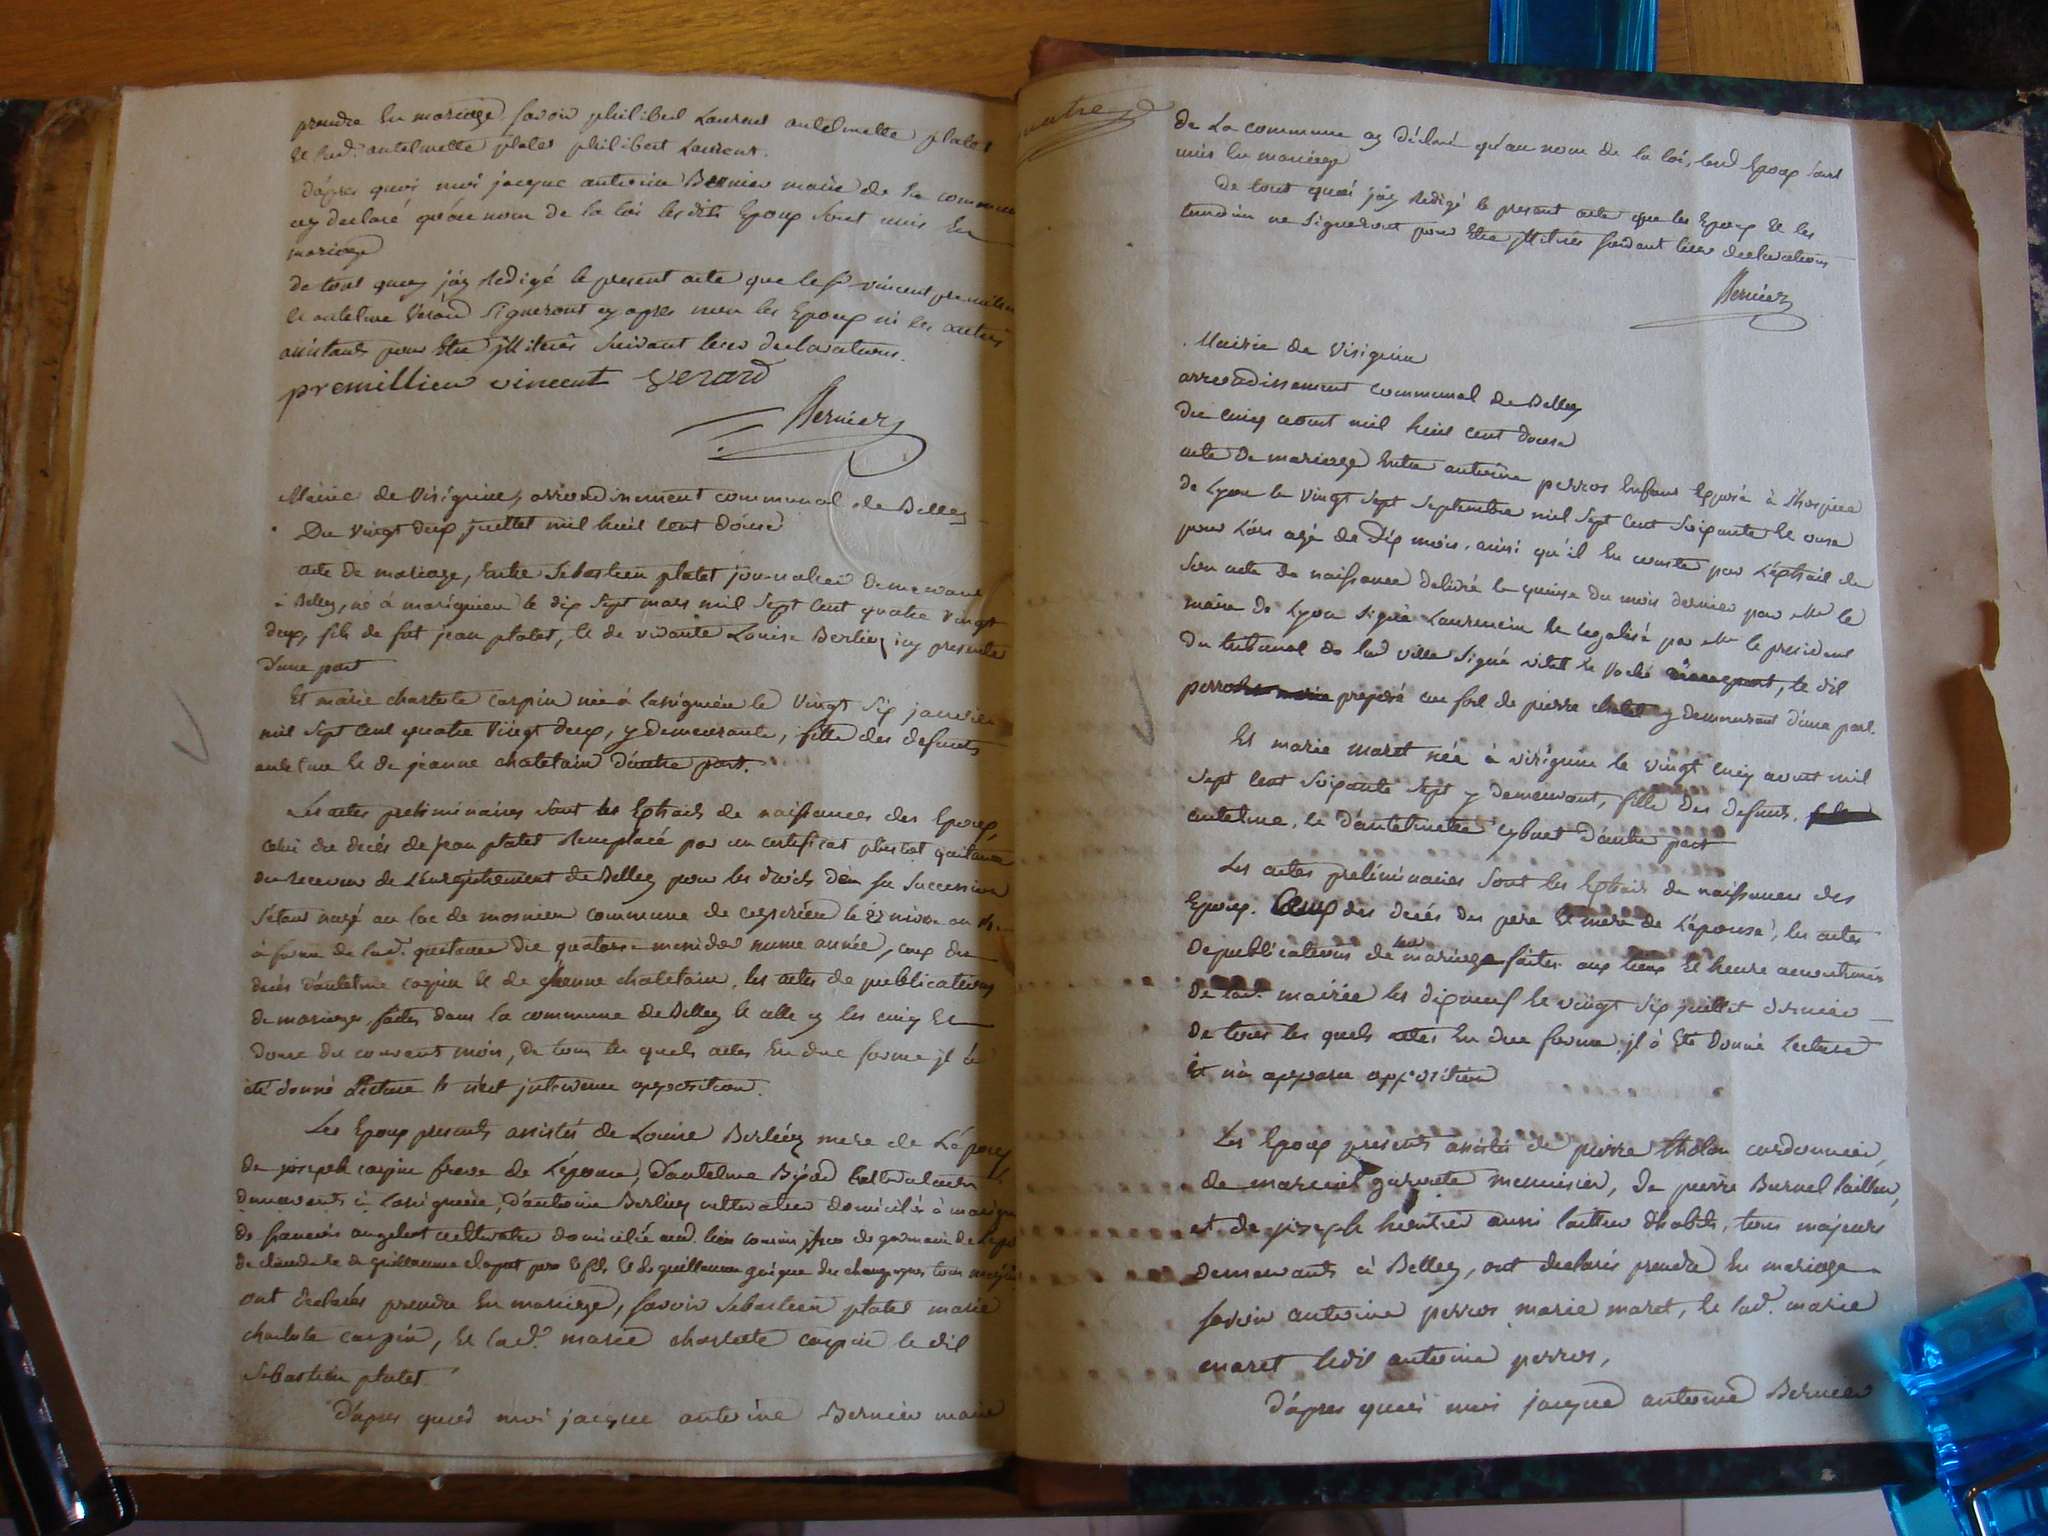 prendre En mariage, savoir philibert Laurent antelmette platet
Et lad. antelmette platet philibert Laurent.
d'apres quoi moi jacque antoine Bernier maire de la commune
ay declaré qu'au nom de la loi lesdits Epoux sont unis En
mariage
de tout quoy j'ay redigé le present acte que le sr vincent premillieu
et antelme Verard signeront cy apres non les Epoux ni les autres
assistants pour Etre illiterés suivant leur declarations.
premillieu vincent verard
Bernier
Mairie de Virignin, arrondissement communal de Belley
Du vingt deux juillet mil huit cent douse
acte de mariage, Entre Sebastien platet journalier demeurant
à Belley, né à marignieu le dix sept mars mil sept cent quatre vingt
deux, fils de fut jean platet, et de vivante Louise Berliez icy presente
d'une part
Et marie charlote carpin née à Lassignieu le vingt six janvier
mil sept cent quatre vingt deux, y demeurante, fille des defunts
antelme et de jeanne chatelain d'autre part.
Les actes preliminaires sont les Extraits de naissances des Epoux,
celui du decés de jean platet remplacé par un certificat plustot quitance
du receveur de L'enregistrement de Belley pour les droits de sa succession
s'étant noyé au lac de commune de ceyzerieu le nivose an
à forme de lad. quitance du quatorse messidor meme année, ceux du
decés d'antelme carpin et de jeanne chatelain, les actes de publications
de mariage faites dans la commune de Belley et celle cy les cinq Et
douse du courant mois, de tous les quels actes En due forme il à
été donné lecture et n'est intervenu opposition.
Les Epoux presents assistés de Louise Berliez mere de L'epoux
de joseph carpin frere de L'épouse, d'antelme Bijod cultivateur
demeurants à Lassignieu, d'antoine Berliez cultivateur domicilié à marignieu
de francois angelot cultivateur domicilié aud. lieu cousin issus de germain de L'epx
de claude et de guillaume clapot pere et fils et de guillaume guigue du changey tous majeurs
ont declarés prendre En mariage, savoir Sebastien platet marie
charlote carpin, Et lad. marie charlote carpin le dit
Sebastien platet.
D'apres quoi moi jacque antoine Bernier maire
de La commune ay déclaré qu'au nom de la loi, lesd Epoux sont
unis En mariage
De tout quoi j'ay redigé le present acte que les Epoux Et les
temoins ne signeront pour Etre illiterés suivant leur declarations
Bernier
Mairie de Virignin
arrondissement communal de Belley
Du cinq aout mil huit cent douse
acte de mariage Entre antoine perros Enfant Exposé à l'hospice
de Lyon le vingt sept septembre mil sept cent soixante Et onse
pour Lors agé de dix mois, ainsi qu'il En conste par L'éxtrait de
son acte de naissance delivré le quinse du mois dernier par Mr le
maire de Lyon signé Laurencin Et legalisé par Mr le president
du tribunal de lad ville signé vitet le dit
perros preposé au fort de pierre chatel y demeurant d'une part.
Et marie maret née à virignin le vingt cinq avout mil
sept cent soixante sept y demeurant, fille des defunts,
antelme, et d'antelmette cybuet d'autre part
Les actes preliminaires sont les Extrais de naissances des
Epoux. Ceux des decés des pere Et mere de L'épouse, les actes
de publications de leur mariage faites aux lieux Et heure accoutumés
de lad. mairie les dixneuf Et vingt six juillet dernier
De tous les quels actes En due forme il à Eté donné lecture
Et n'a apparu opposition
Les Epoux presents assistés de pierre tholon cordonnier,
de marciel menuisier, de pierre Burnel tailleur,
et de joseph heritier aussi tailleur d'habits, tous majeurs
demeurants à Belley, ont declarés prendre En mariage
savoir antoine perros marie maret, Et lad. marie
maret ledit antoine perros,
d'apres quoi moi jacque antoine Bernier